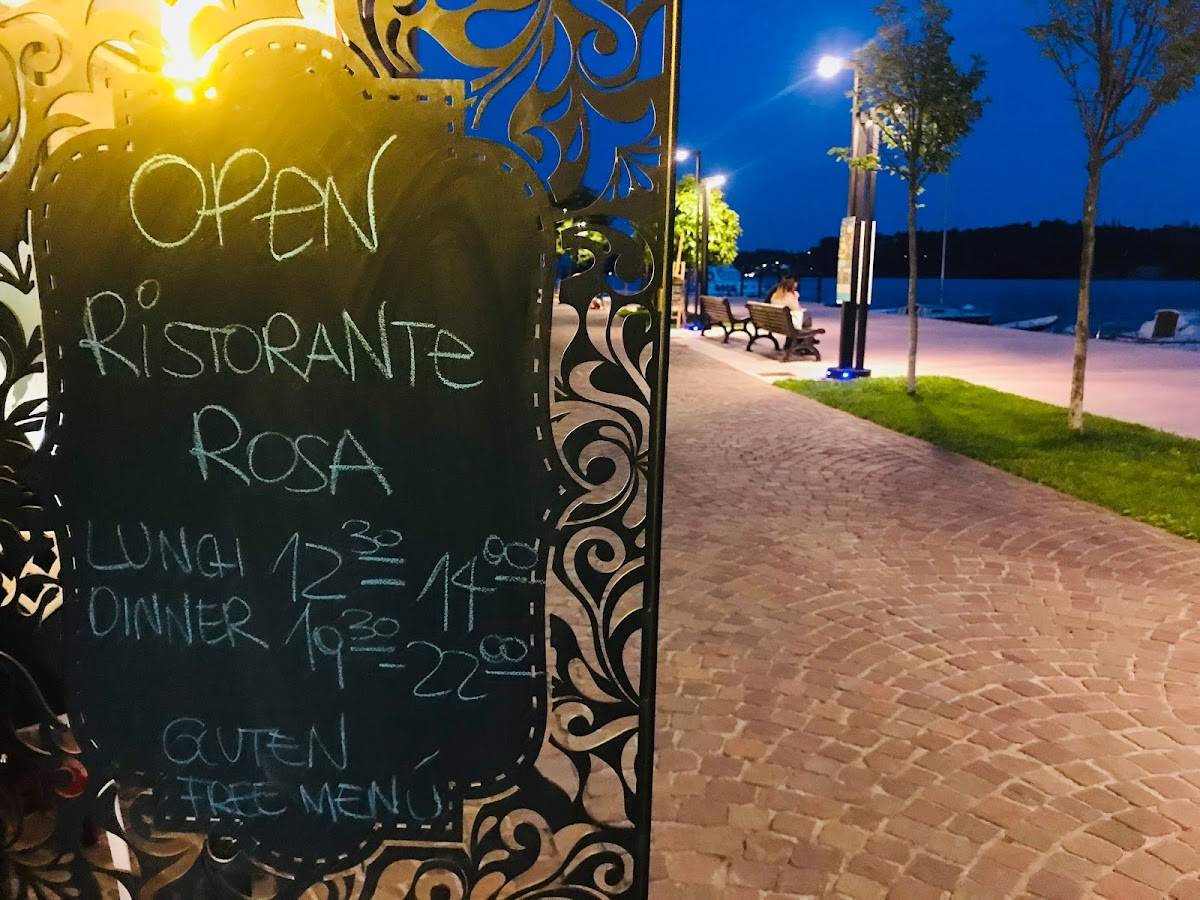 OPEN
RiSTORANTE
ROSA
LUNCH 12³⁰ = 14⁰⁰
DINNER 19³⁰ = 22⁰⁰
GLUTEN
FREE MENÚ